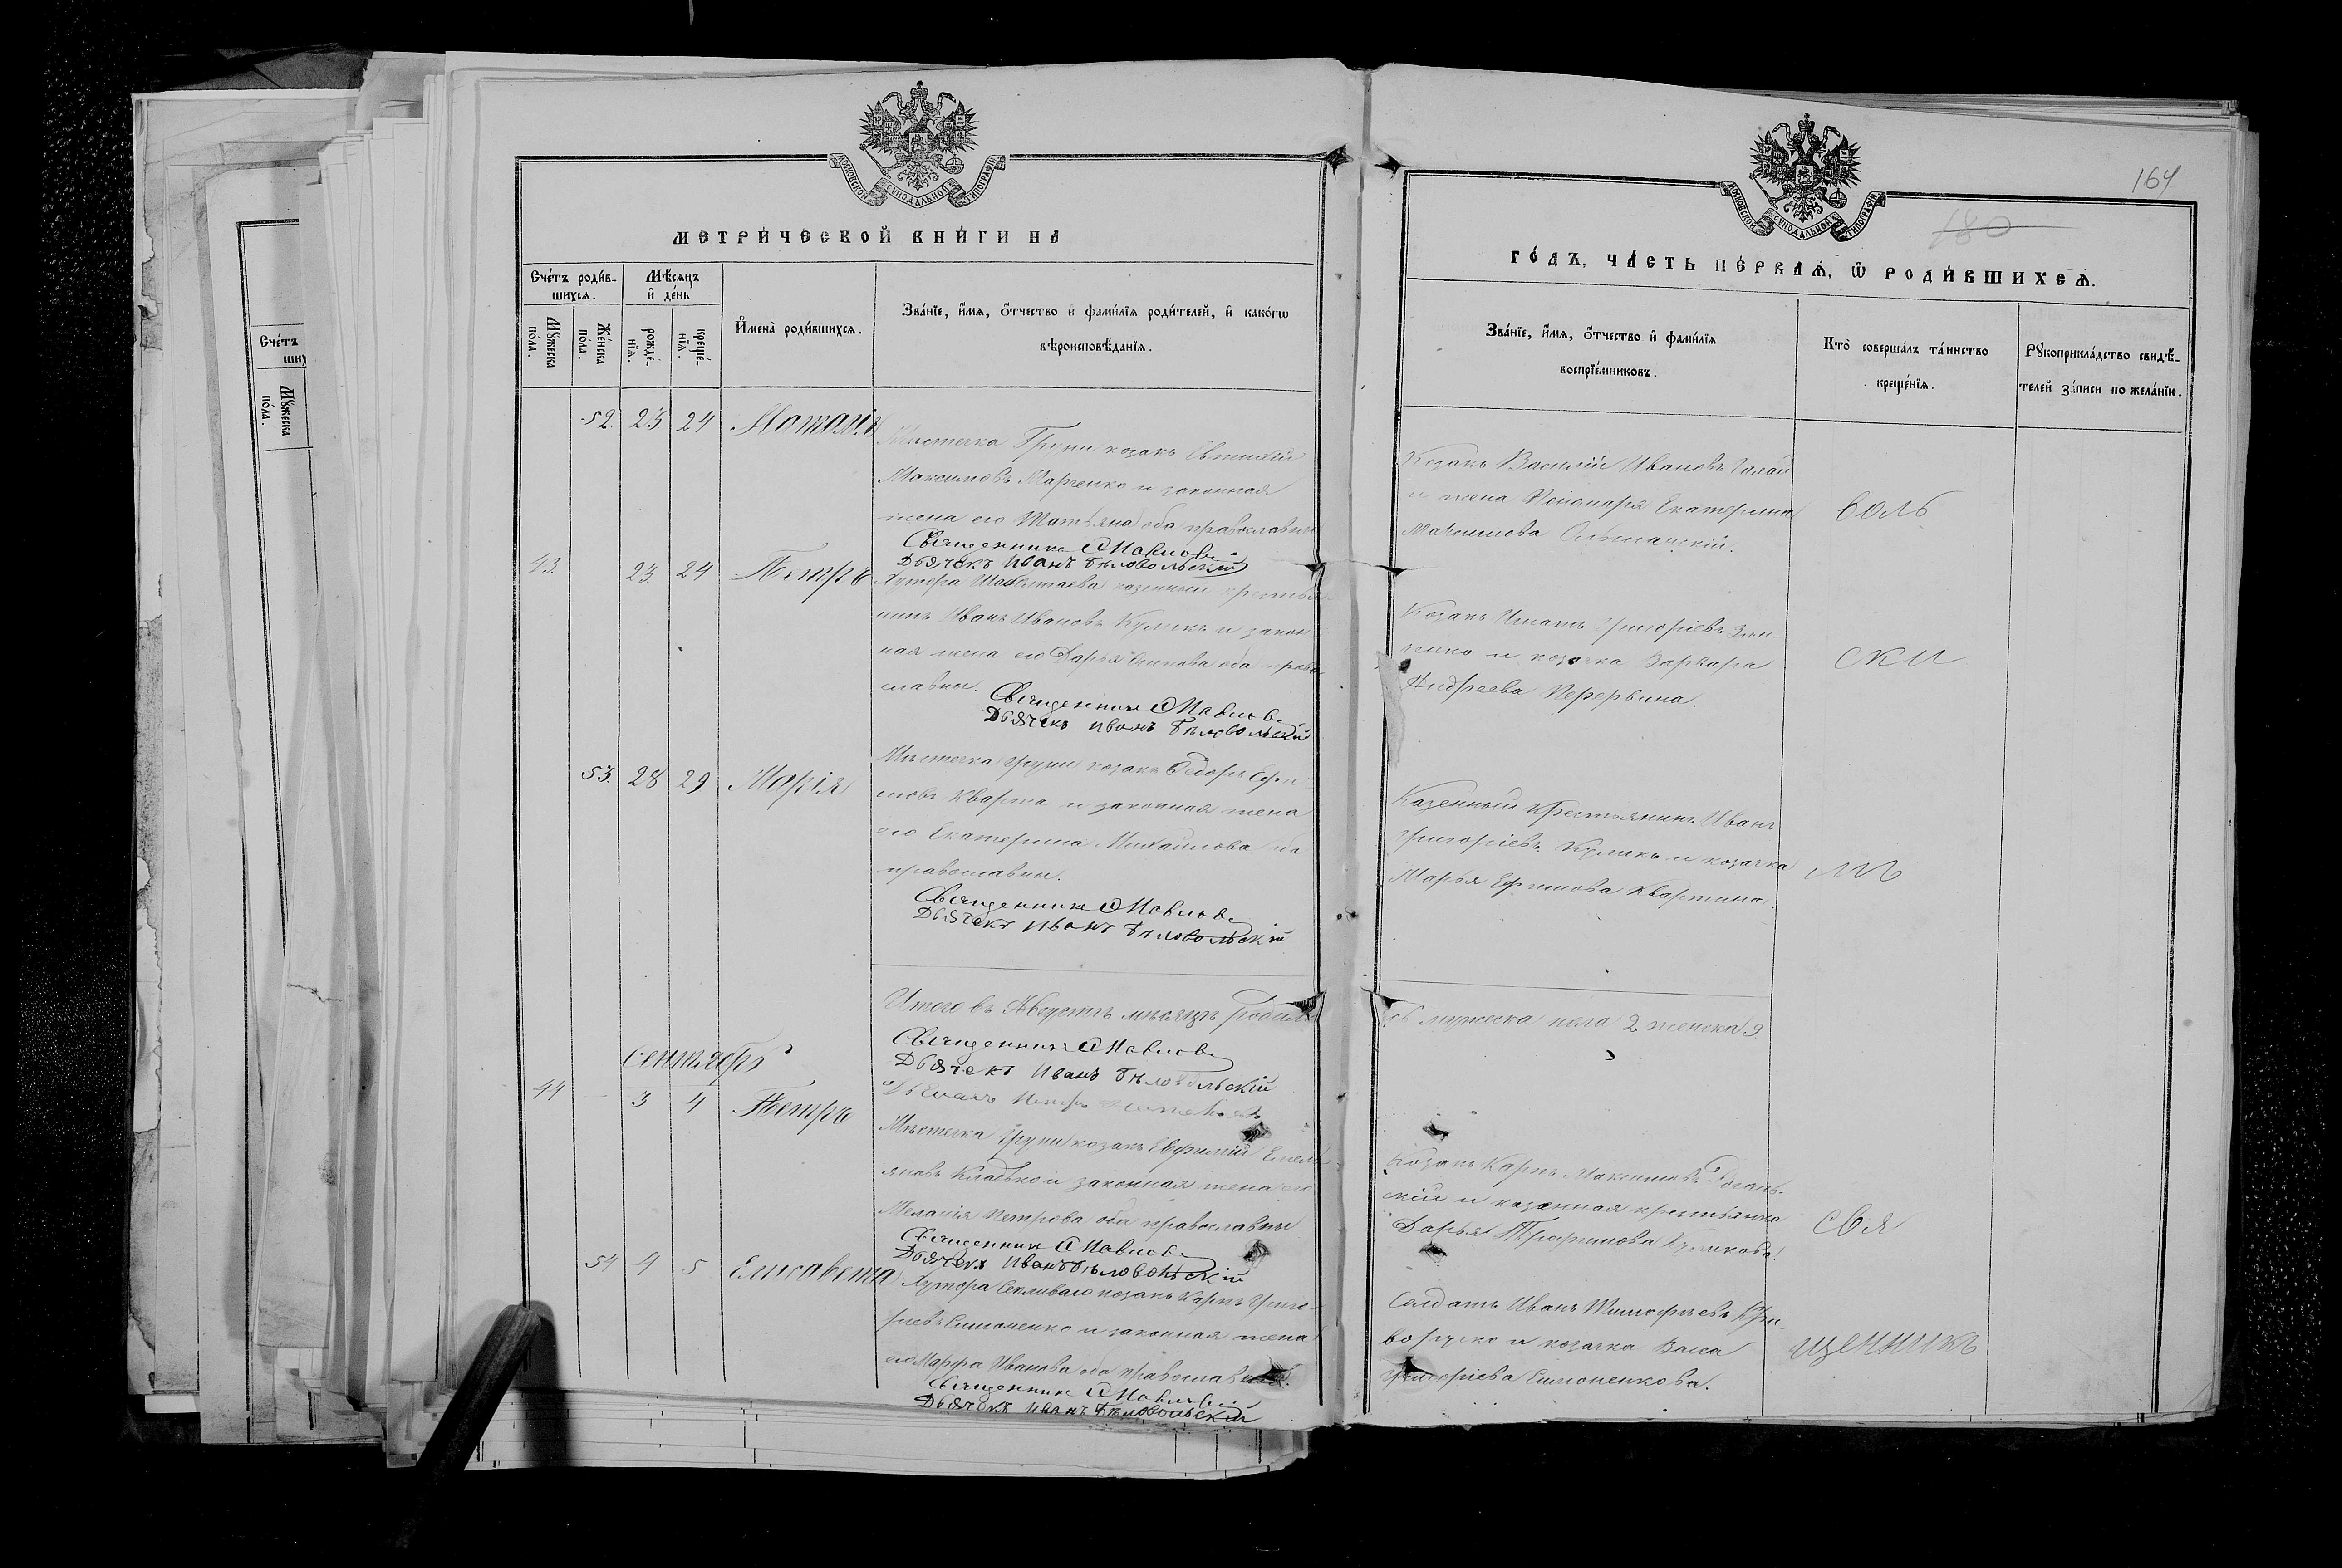 МОСКОВСКОЙ СѴНОДАЛЬНОЙ ТИПОГРАФІИ
МЕТРИ́ЧЕСКОЙ КНИ́ГИ НА
Сче́тъ роди́в-
шихся.
Мѣ́сяцъ
и҆ де́нь
Мꙋ́жеска
по́ла.
Же́нска
по́ла.
рожде́-
нїя.
креще́-
нїя.
И҆мена̀ роди́вшихся.
Зва́нїе, и҆́мя, ѻ҆́тчество и҆ фами́лїя роди́телей, и҆ како́гѡ
вѣроисповѣ́данїя.
52. 23 24 Наталія
Мѣстечка Груни козакъ
Максимовъ Марченко и законная
жена его Татьяна оба православны
Священникъ
Дьячекъ Иванъ Бѣловольскій
43. 23. 24 Петръ
Хутора казенный крестья
нинъ Иванъ Ивановъ Куликъ и закон
ная жена его Дарья оба право
славны.
Священникъ
Дьячекъ Иванъ Бѣловольскій
53. 28 29 Марія
Мѣстечка Груни козакъ Федоръ Ефи
мовъ Кварта и законная жена
его Екатерина Михайлова оба
православны.
Священникъ
Дьячекъ Иванъ Бѣловольскій
Итого въ Августѣ мѣсяцѣ родило
Священникъ
Дьячекъ Иванъ Бѣловольскій
Сентябрь
44 3 4 Петръ
Мѣстечка Груни козакъ Евфимій Емель
яновъ и законная жена его
Меланія Петрова оба православны
Священникъ
Дьячекъ Иванъ Бѣловольскій
54 4 5 Елисавета
Хутора козакъ Карпъ Григо-
ріевъ Симоненко и законная жена
его Марфа Иванова оба православны.
Священникъ
Дьячекъ Иванъ Бѣловольскій
164
180
МОСКОВСКОЙ СѴНОДАЛЬНОЙ ТИПОГРАФІИ
ГО́ДЪ, ЧА́СТЬ ПЕ́РВАЯ, Ѡ РОДИ́ВШИХСЯ.
Зва́нїе, и҆́мя, ѻ҆́тчество и҆ фами́лїя
воспрїе́мниковъ.
Кто̀ соверша́лъ та́инство
креще́нїя.
Рꙋкоприкла́дство свидѣ́-
телей за́писи по жела́нїю.
Козакъ Василій Ивановъ Галай
и жена Пономаря Екатерина
Максимова
воль
Козакъ Игнатъ Григоріевъ Зин-
ченко и козачка Варвара
Андреева Перервина.
ски
Казенный крестьянинъ Иванъ
Григоріевъ Куликъ и козачка
Марья Ефимова Квартина.
мъ
сь мужеска пола 2 женска 9
Козакъ Карпъ Максимовъ
скій и казенная крестьянка
Дарья Трофимова Куликова.
Свя
Солдатъ Иванъ Тимофѣевъ Кри-
воручко и козачка Васса
Григоріева Симоненкова.
щенникъ